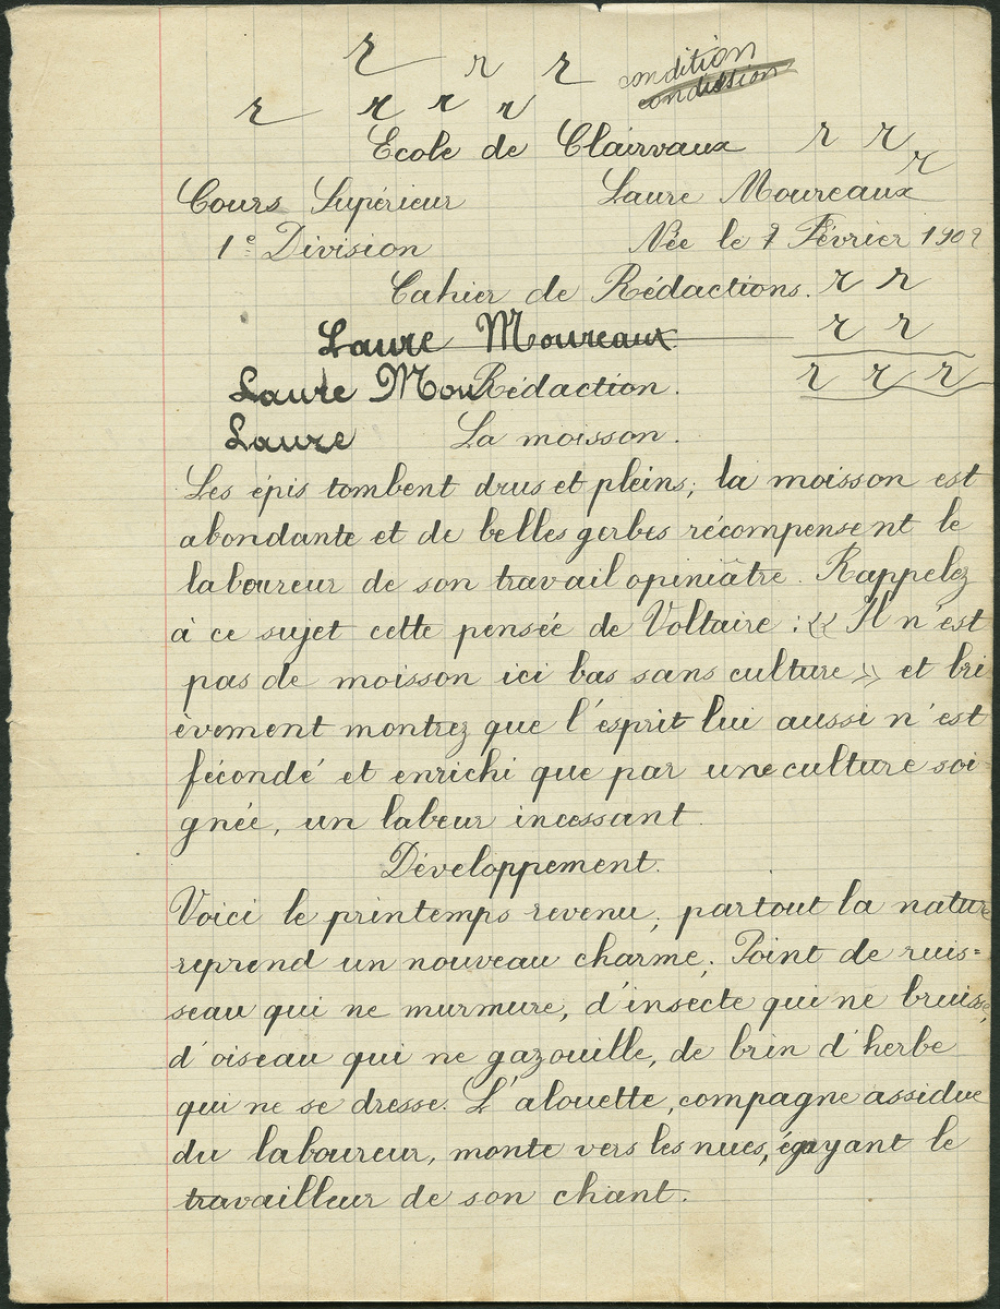 r r r condition
r r r r condission
Ecole de Clairvaux r r r
Cours Supérieur Laure Moureaux
1e Division Née le 7 Février 1902
Cahier de Rédactions. r r
Laure Moureaux r r
Laure Mou Rédaction. r r r
Laure La moisson.
Les épis tombent drus et pleins; la moisson est
abondante et de belles gerbes récompensent le
laboureur de son travail opiniâtre. Rappelez
à ce sujet cette pensée de Voltaire : << Il n'est
pas de moisson ici bas sans culture >> et bri
èvement montrez que l'esprit lui aussi n'est
fécondé et enrichi que par une culture soi
gnée, un labeur incessant.
Développement.
Voici le printemps revenu, partout la nature
reprend un nouveau charme; Point de ruis=
seau qui ne murmure, d'insecte qui ne bruisse,
d'oiseau qui ne gazouille, de brin d'herbe
qui ne se dresse. L'alouette, compagne assidue
du laboureur, monte vers les nues, égayant le
travailleur de son chant.